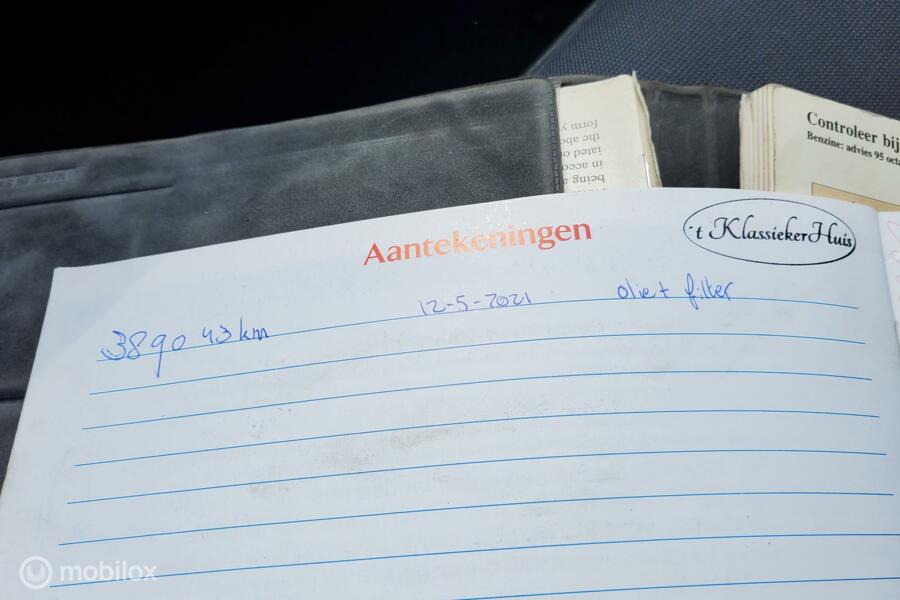 MADE IN S
form y
the abo
iated or
in acco
being a
Controleer bij
Benzine: advies 95 octa
Aantekeningen
't KlassiekerHuis
389043 km 12-5-2021 olie + filter
mobilox